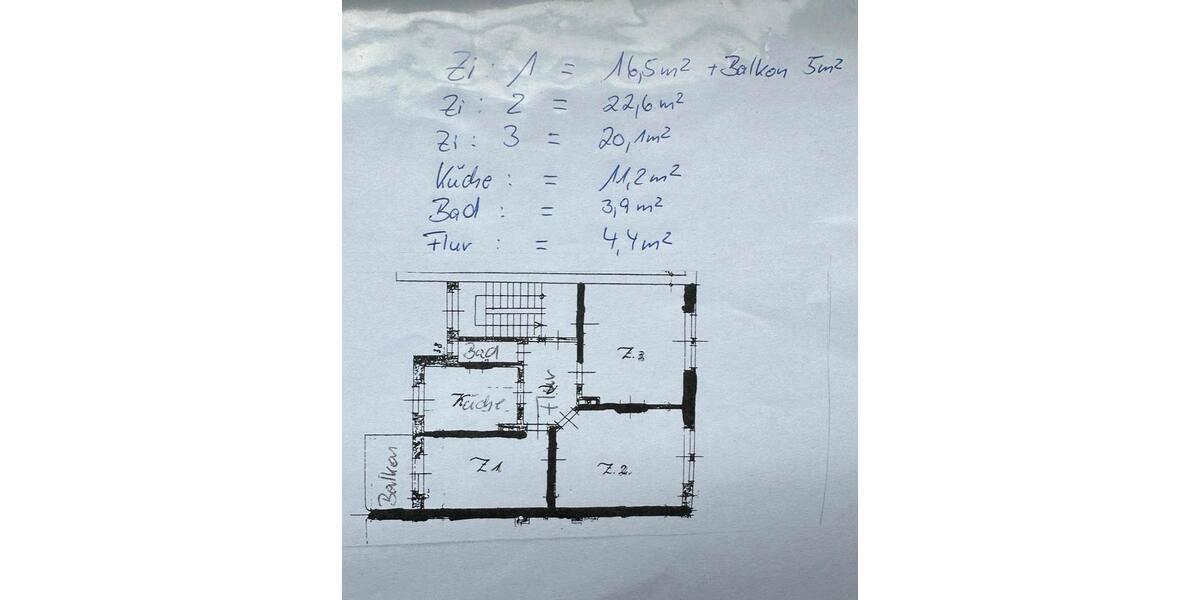 Zi : 1 = 16,5 m² + Balkon 5m²
Zi : 2 = 22,6 m²
Zi : 3 = 20,1 m²
Küche : = 11,2 m²
Bad : = 3,9 m²
Flur : = 4,4 m²
Bad
Z.3
Flur
Küche
Z1
Z.2.
Balkon